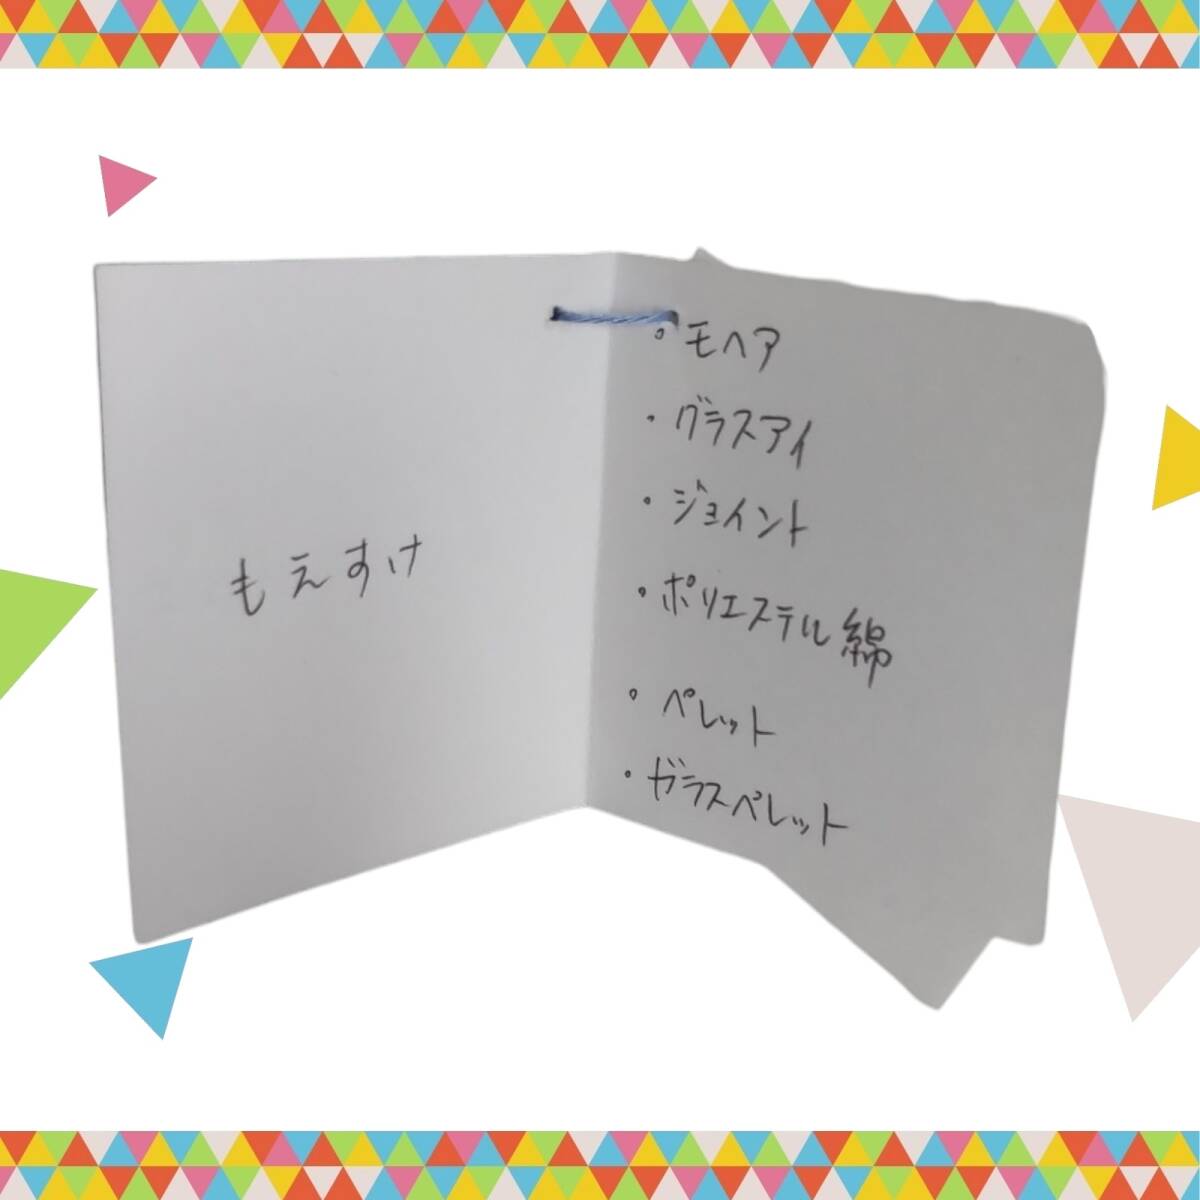 もえすけ
・モヘア
・グラスアイ
・ジョイント
・ポリエステル綿
・ペレット
・ガラスペレット